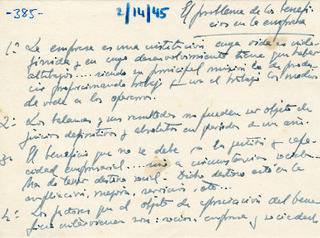 -385-
2/14/45
El problema de los benefi-
cios en la empresa
1º: La empresa es una institución cuya vida es inde-
finida y en cuyo desenvolvimiento tiene que haber
altibajos.... siendo su principal misión la de produ-
cir proporcionando trabajo y con el trabajo los medios
de vida a los operarios.
2º: Los balances y sus resultados no pueden ser objeto de
juicios definitivos y absolutos en períodos de un año
3º El beneficio que no se debe a la gestión y capa-
cidad empresarial..... sino a circunstancias
ha de tener destino social. Dicho destino está en la
ampliación, mejora, servicios etc...
4º: Los factores que el objeto de apreciación del bene-
ficio intervienen son: socios, empresa y sociedad